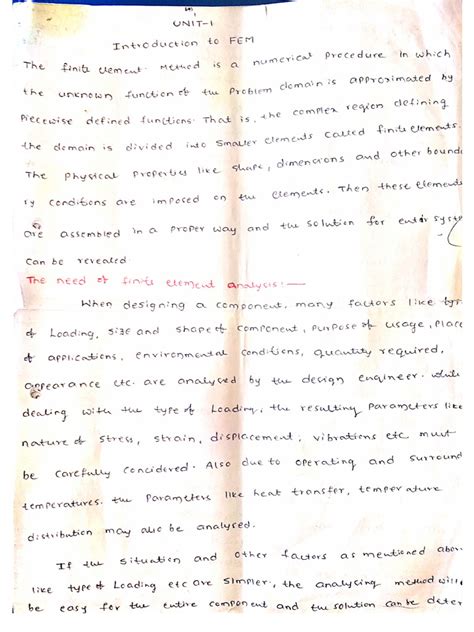 UNIT-1
Introduction to FEM
The finite element Method is a numerical Procedure in which
the unknown function of the Problem domain is approximated by
Piecewise defined functions. That is, the complex region defining
the domain is divided into smaller elements called finite elements.
The Physical Properties like shape, dimensions and other bound
ry conditions are imposed on the elements. Then these elements
are assembled in a Proper way and the solution for entire syste
can be revealed
The need of finite element analysis:-
When designing a component, many factors like type
of Loading, size and shape of component, purpose of usage, place
of applications, environmental conditions, quantity required,
appearance etc. are analysed by the design engineer. While
dealing with the type of Loading, the resulting Parameters like
nature of stress, strain, displacement, vibrations etc must
be carefully concidered. Also due to operating and surround
temperatures. the Parameters like heat transfer, temperature
distribution may also be analysed.
If the situation and other factors as mentioned abov
like type of Loading etc are simpler, the analysing method will
be easy for the entire component and the solution can be deter